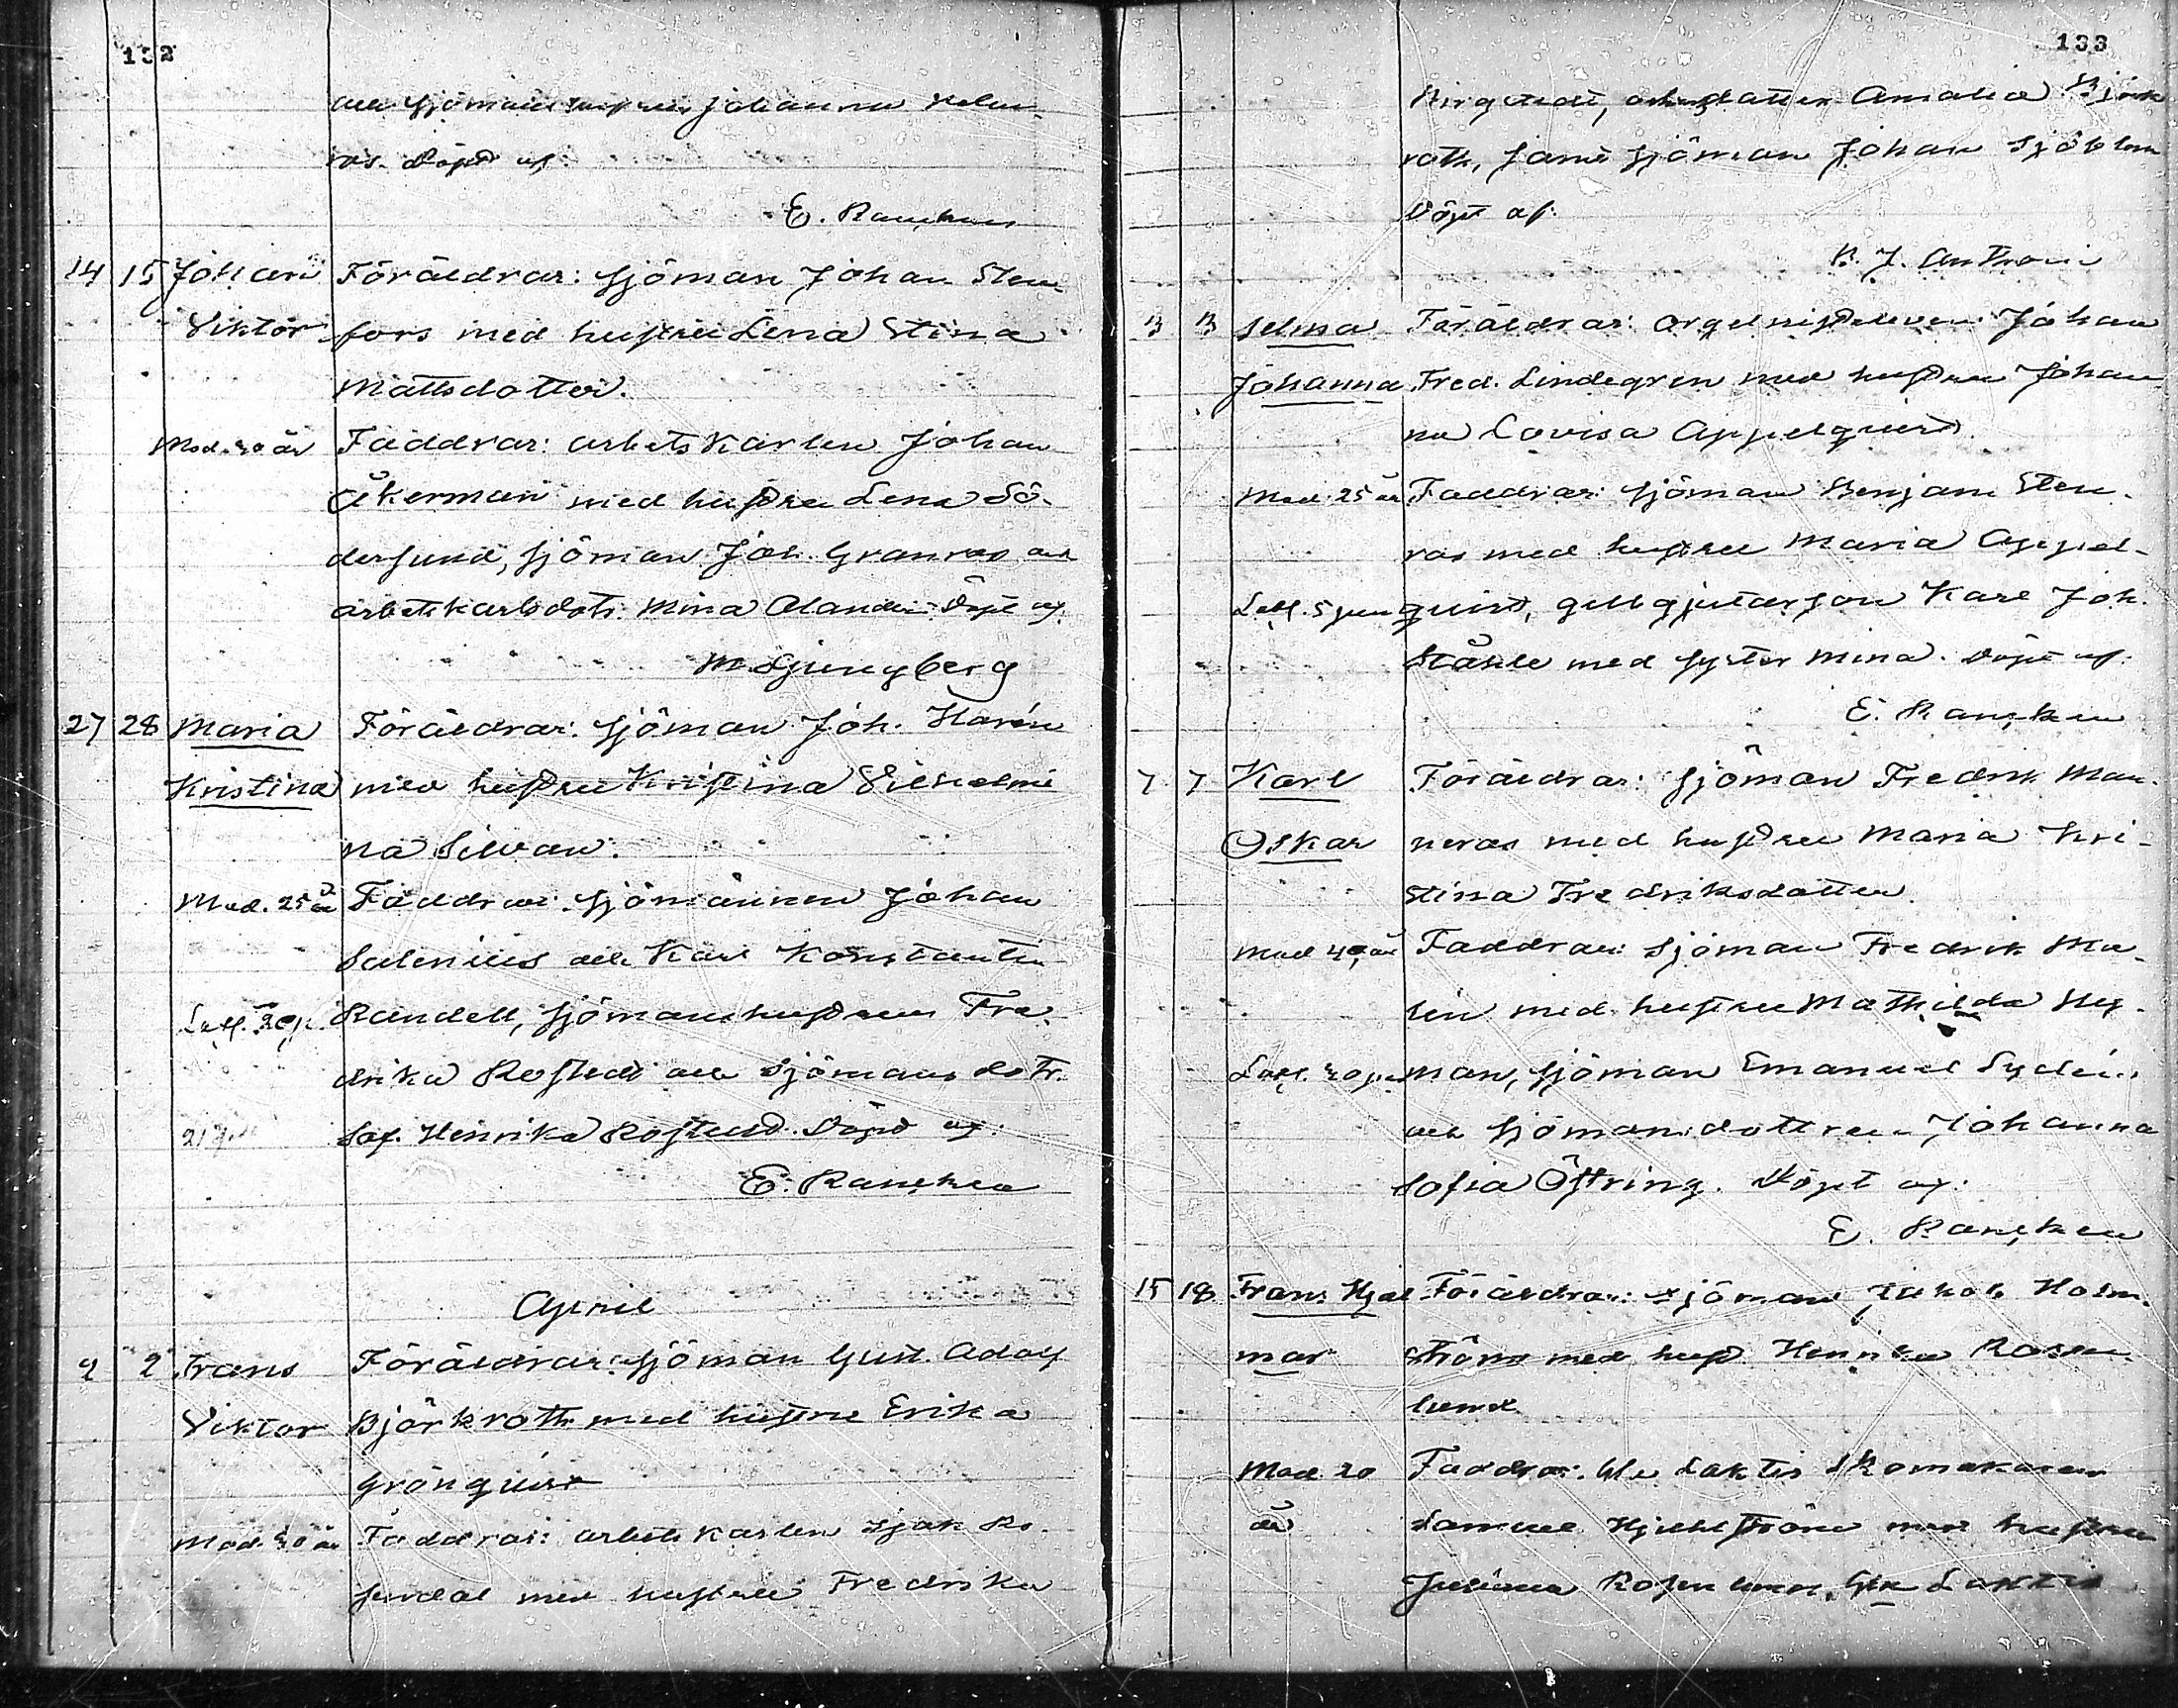 132
och sjömans hustru Johanna
ras. Döpt af:
E. Rancken
14 15 Johan Föräldrar: sjöman Johan Sten-
Viktor fors med hustru Lena Stina
Mattsdotter.
Mod. 40 år Faddrar: arbetskarlen Johan
Åkerman med hustru Lena Sö-
derlund, sjöman Joh. Granros och
arbetskarlsdotr. Mina Alander. Döpt af:
M. Ljungberg
27 28 Maria Föräldrar: sjöman Joh. Harén
Kristina med hustru Kristina Vilhelmi-
na Silvan.
Mod. 25 år Faddrar: sjömännen Johan
Salenius och Karl Konstantin
Randell, sjömanshustrun Fre-
drika Rostedt och sjömans dotr.
Sof. Henrika Rostedt. Döpt af:
E. Rancken
April
2 2 Frans Föräldrar: sjöman Gust. Adolf
Viktor Björkroth med hustru Erika
Grönquist
Mod. 40 år Faddrar: arbetskarlen Isak Ro-
sendal med hustru Fredrika
133
Bergstedt, dotter Amalia Björk-
roth, samt sjöman Johan Sjöblom
Döpt af:
B. J.
3 3 Selma Föräldrar: Orgelnisteleven Johan
Johanna Fred. Lindegren med hustru Johan-
na Lovisa Appelquist.
Mod. 25 år Faddrar: sjöman Benjam. Sten-
ros med hustru Maria Appel-
quist, gelbgjutarson Karl Joh.
Ståhle med syster Mina. Döpt af:
E. Rancken
7 7 Karl Föräldrar: sjöman Fredrik Man-
Oskar neros med hustru Maria Kri-
stina Fredriksdotter.
Mod. 40 år Faddrar: sjöman Fredrik Ma-
lén med hustru Mathilda Ny-
man, sjöman Emanuel Lydén
och sjömansdottren Johanna
Sofia Östring. Döpt af:
E. Rancken
15 18 Frans Hjal Föräldrar: sjöman Jakob Holm-
mar ström med hust. Henrika Rosen-
lund
Mod. 20 Faddrar: Gla Laktis skomakaren
år Samuel Hjeltström med hustru
Rosenlund, Gla Laktis